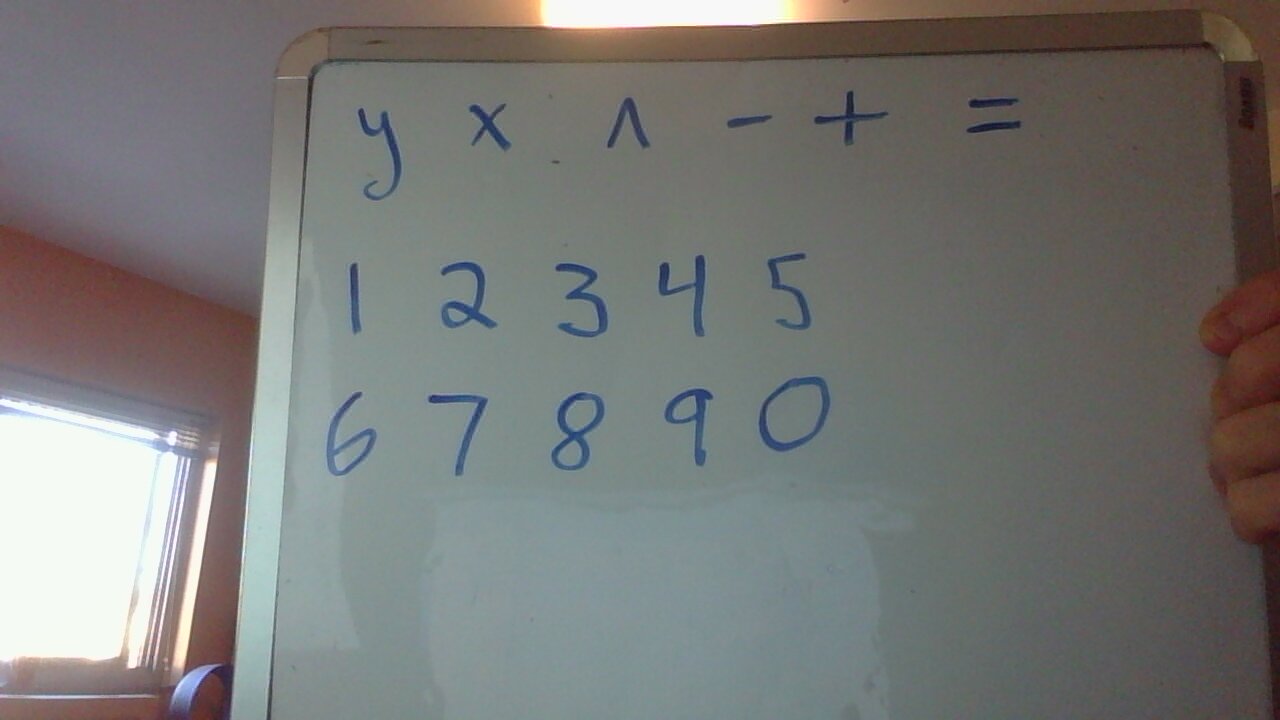 y x ^ - + =
1 2 3 4 5
6 7 8 9 0